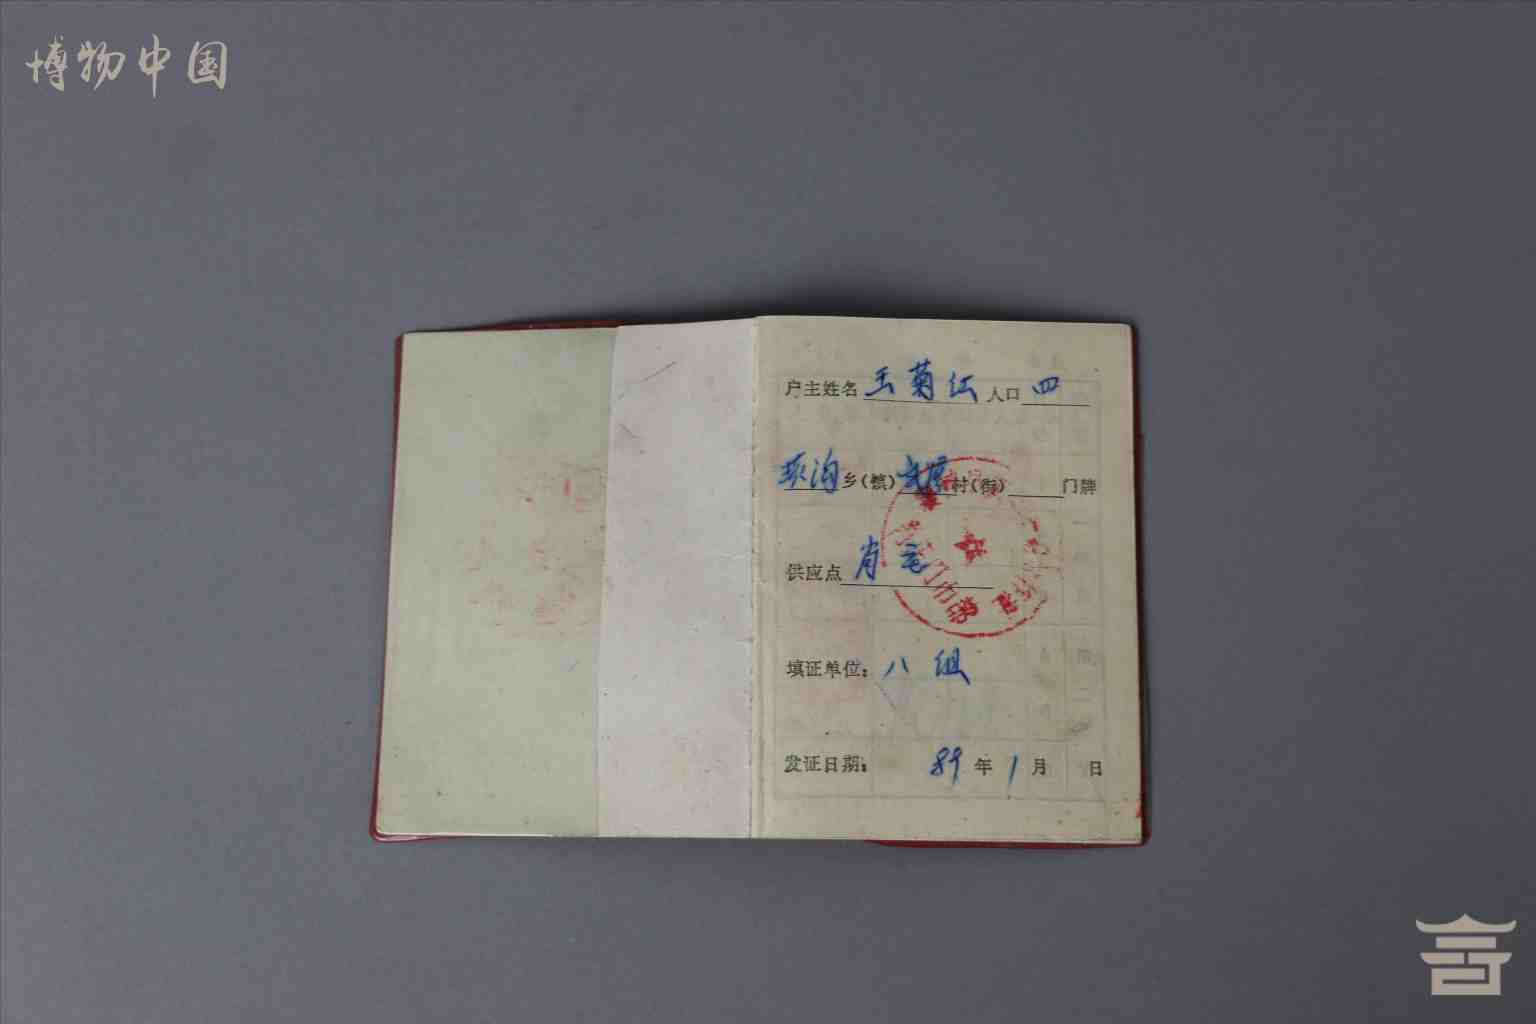 博物中国
户主姓名 王菊红 人口 四
乡(镇) 村(街) 门牌
供应点 肖宅
填证单位: 八组
发证日期: 89年1月 日